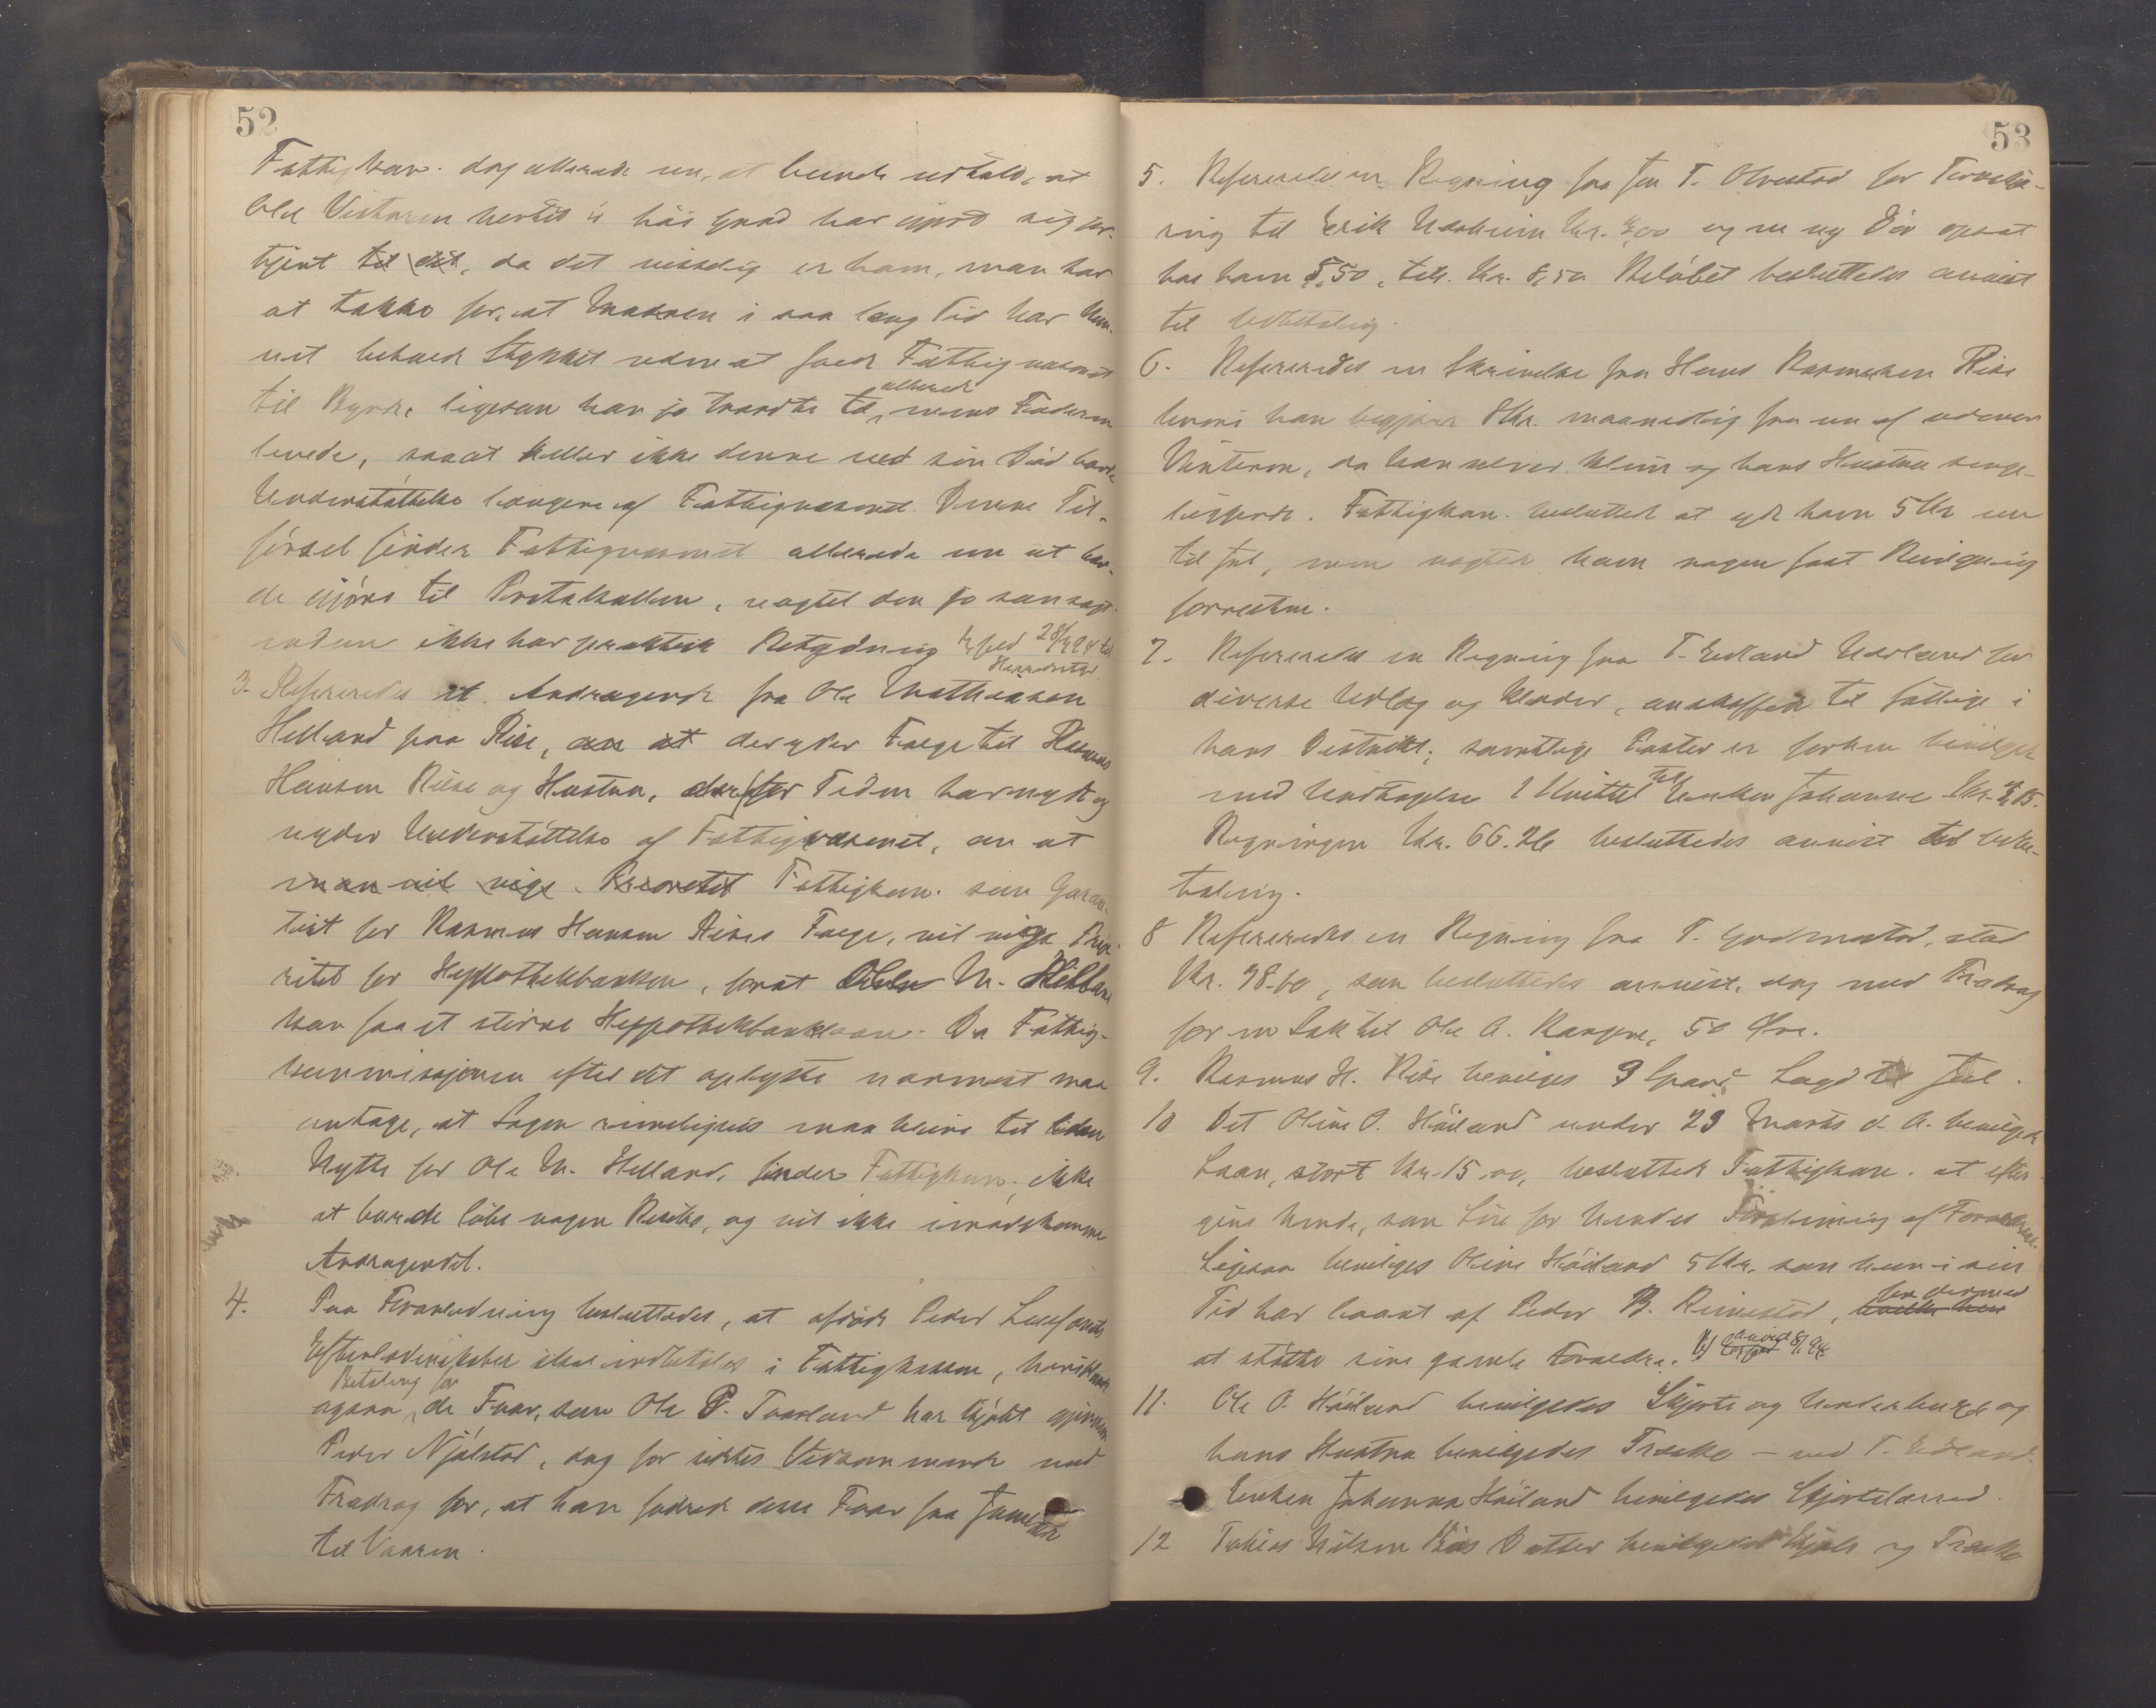 52
Fattigkom. dog allerede nu, at burde udtale, at
Ole Vistnæs hertil i høi Grad har gjort sig for-
tjent til det, da det visselig er ham, man har
at takke for, at Madsen i saa lang Tid har kun-
net beholde Stykket uden at falde Fattigvæsenet
til Byrde, ligesom han jo traadte til allerede, mens Faderen
levede, saaat heller ikke denne ved sin Død havde
Understøttelse længere af Fattigvæsenet. Denne Til-
førsel finder Fattigvæsenet allerede nu at bur-
de gjøres til Protokollen, uagtet den jo som sagt
endnu ikke har praktisk Betydning 28/4 94 til
Herredsstyr.
3. Refereredes et Andragende fra Ole Mathiassen
Helland paa Rise, om at der yder Foege til Rasmus
Hansen Riise og Hustru, der for Tiden har nydt og
nyder Understøttelse af Fattigvæsenet, om at
man vil vige Prioritet Fattigkom. som Garan-
tist for Rasmus Hansen Rises Foege, vil vige Prio-
ritet for Hypothekbanken, forat Ole M. Helland
kan faa et større Hypothekbanklaan. Da Fattig-
kommissjonen efter det oplyste nærmest maa
antage, at Sagen rimeligvis maa blive til liden
Nytte for Ole M. Helland, finder Fattigkom. ikke
at burde løbe nogen Risiko, og vil ikke imødekomme
Andragendet.
4. Paa Foranledning besluttedes, at afdøde Peder
Efterladenskaber skal indbetales i Fattigkassen,
ogsaa Betaling for de Faar, som Ole P. Tvarland har kjøbt gjennem
Peder Njølstad, dog for sidstes Vedkommende med
Fradrag for, at han fodrede disse Faar fra
til Vaaren.
53
5. Refereredes en Regning fra Jon T. Olvestad for Torvkjø-
ring til Erik Nærheim Kr. 3,00 og en ny Dør opsat
hos ham 5,50, tils. Kr. 8,50. Beløbet besluttedes anvist
til Udbetaling.
6. Refereredes en Skrivelse fra Hans Rasmussen Rise
hvori han begjærer 8 Kr. maanedlig fra nu af udover
Vinteren, da han selv er klein og hans Hustru senge-
liggende. Fattigkom. besluttede at yde ham 5 Kr nu
til Jul, men nægter ham nogen fast Bevilgning
forresten.
7. Refereredes en Regning fra T. Eidland Uelland for
diverse Udlæg og Klæder, anskaffede til fattige i
hans Distrikt; samtlige Poster er forhen bevilget
med Undtagelse 1 Kvittel til Enken Johanne Kr. 4,15.
Regningen Kr. 66.26 besluttedes anvist til Udbe-
taling.
8 Refereredes en Regning fra T. Grødemstad, stor
Kr. 98.60, som besluttedes anvist, dog med Fradrag
for en Sæk til Ole A. Kongen, 50 Øre.
9. Rasmus H. Rise bevilges 3 Spand Lagd til Jul.
10 Det Oline O. Høiland under 23 Marts d. A. bevilgede
Laan, stort Kr 15,00, besluttede Fattigkom. at efter-
give hende, som Løn for hendes af Forældrene.
Ligesaa bevilges Oline Høiland 5 Kr. som hun i sin
Tid har laant af Peder B. Reimestad, for dermed
at støtte sine gamle Forældre. anvist 8/1 94
11. Ole O. Høiland bevilgedes Skjorte og Underbuxe og
hans Hustru bevilgedes Træsko – ved T. Eidland.
Enken Johanna Høiland bevilgedes Skjortelærred.
12 Tobias Nilsen Riis Datter bevilgedes Kjole og Træsko